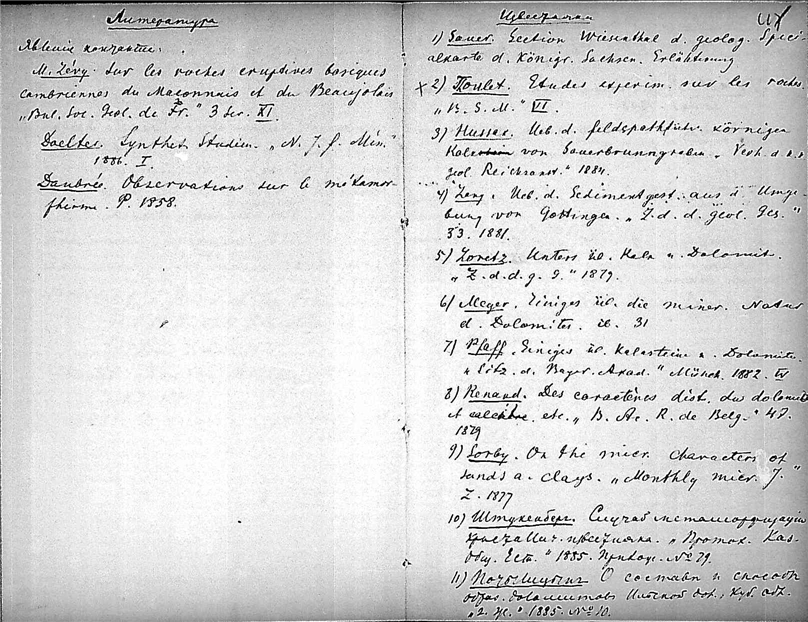 Литература
Явленiе контакта:
M. Lévy. Sur les roches eruptives basiques
cambriennes du Maconnais et du Beaujolais
„Bul. Soc. Geol. de Fr.“ 3 Ser. XI.
Doelter. Synthet. Studien. „N. J. f. Min.“
1886. I
Daubrée. Observations sur le métamor-
phisme. P. 1858.
Известняки
1) Sauer. Section Wiesenthal d. geolog. Speci-
alkarte d. Königr. Sachsen. Erläuterung
2) Thoulet. Etudes experim. sur les roches.
„B. S. M.“ VI.
3) Hussak. Ueb. d. feldspathführ. körnigen
Kalk von Sauerbrunngraben „Verh. d. k. k.
geol. Reichsanst.“ 1884.
4) Lang. Ueb. d. Sedimentgest. aus d. Umge-
bung von Göttingen. „Z. d. d. geol. Ges.“
33. 1881.
5) Loretz. Unters. üb. Kalk u. Dolomit.
„Z. d. d. g. G.“ 1879.
6) Meyer. Einiges üb. die miner. Natur
d. Dolomites. ib. 31
7) Pfaff. Einiges üb. Kalksteine u. Dolomite.
„Sitz. d. Bayer. Akad.“ Münch. 1882. IV
8) Renard. Des caractères dist. du dolomite
et calcite. etc. „B. Ac. R. de Belg.“ 47.
1879
9) Sorby. On the micr. characters of
sands a. clays. „Monthly micr. J.“
Z. 1877
10) Штукенбергъ. Случай метаморфизацiи
известняка. „Проток. Каз.
Общ. Ест.“ 1885. Прилож. № 79.
11) О составѣ и способѣ
образ. доломитовъ
„ “ 1885. № 10.